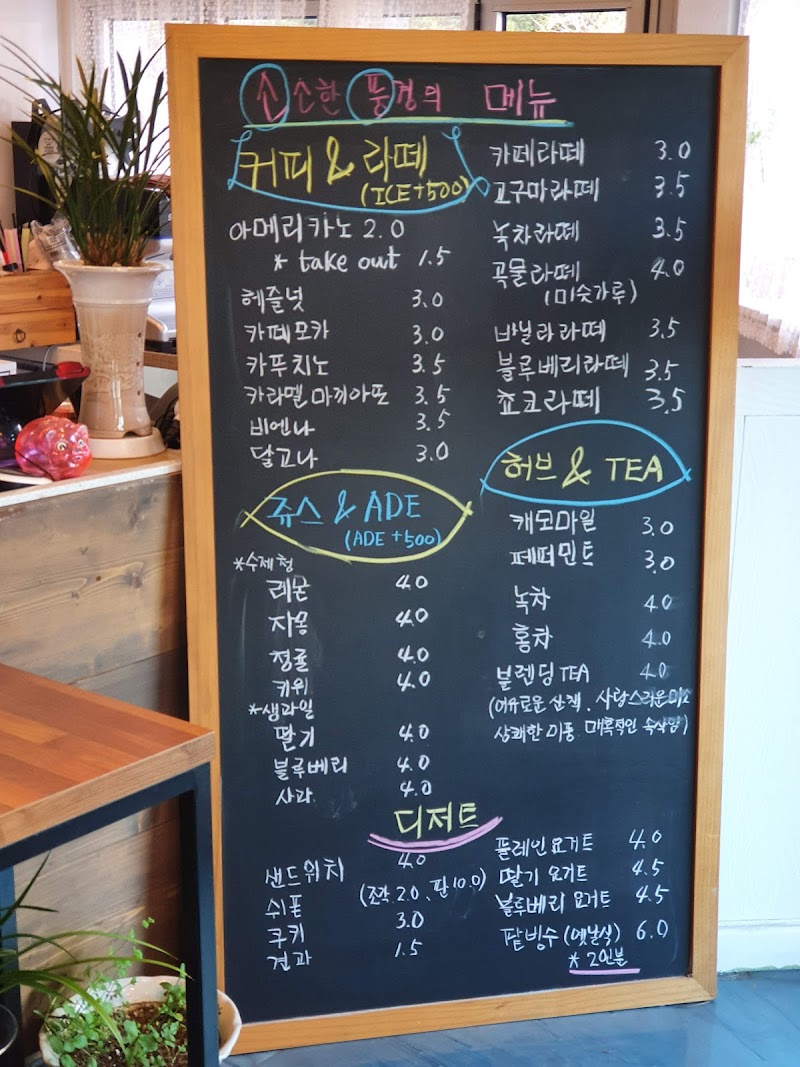 소소한 풍경의 메뉴
커피 & 라떼
(ICE+500)
아메리카노 2.0
* take out 1.5
헤즐넛 3.0
카페모카 3.0
카푸치노 3.5
카라멜 마끼아또 3.5
비엔나 3.5
달고나 3.0
카페라떼 3.0
고구마라떼 3.5
녹차라떼 3.5
곡물라떼 4.0
(미숫가루)
바닐라라떼 3.5
블루베리라떼 3.5
쵸코라떼 3.5
쥬스 & ADE
(ADE +500)
*수제청
레몬 4.0
자몽 4.0
청귤 4.0
키위 4.0
*생과일
딸기 4.0
블루베리 4.0
사과 4.0
허브 & TEA
캐모마일 3.0
페퍼민트 3.0
녹차 4.0
홍차 4.0
블렌딩 TEA 4.0
(여유로운 산책, 사랑스러운 미소
상쾌한 미풍 매혹적인 속삭임)
디저트
샌드위치 4.0
쉬폰 (조각 2.0, 판 10.0)
쿠키 3.0
견과 1.5
플레인 요거트 4.0
딸기 요거트 4.5
블루베리 요거트 4.5
팥빙수 (옛날식) 6.0
* 2인분